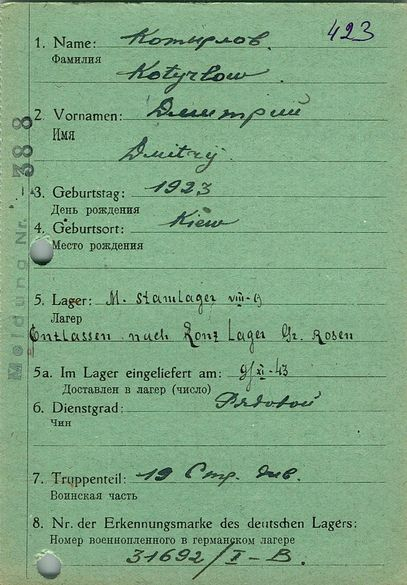 423
1. Name: Котырлов.
Фамилия
Kotyrlow
2. Vornamen: Дмитрий
Имя
Dmitrij
3. Geburtstag: 1923
День рождения
4. Geburtsort: Kiew
Место рождения
5. Lager: M. Stamlager VIII-B
Лагер
Entlassen nach Konz Lager Gr. Rosen
5a. Im Lager eingeliefert am: 9/XI-43
Доставлен в лагер (число)
6. Dienstgrad: Рядовой
Чин
7. Truppenteil: 19 Стр. див.
Воинская часть
8. Nr. der Erkennungsmarke des deutschen Lagers:
Номер военнопленного в германском лагере
31692/I-B.
Meldung Nr. 388